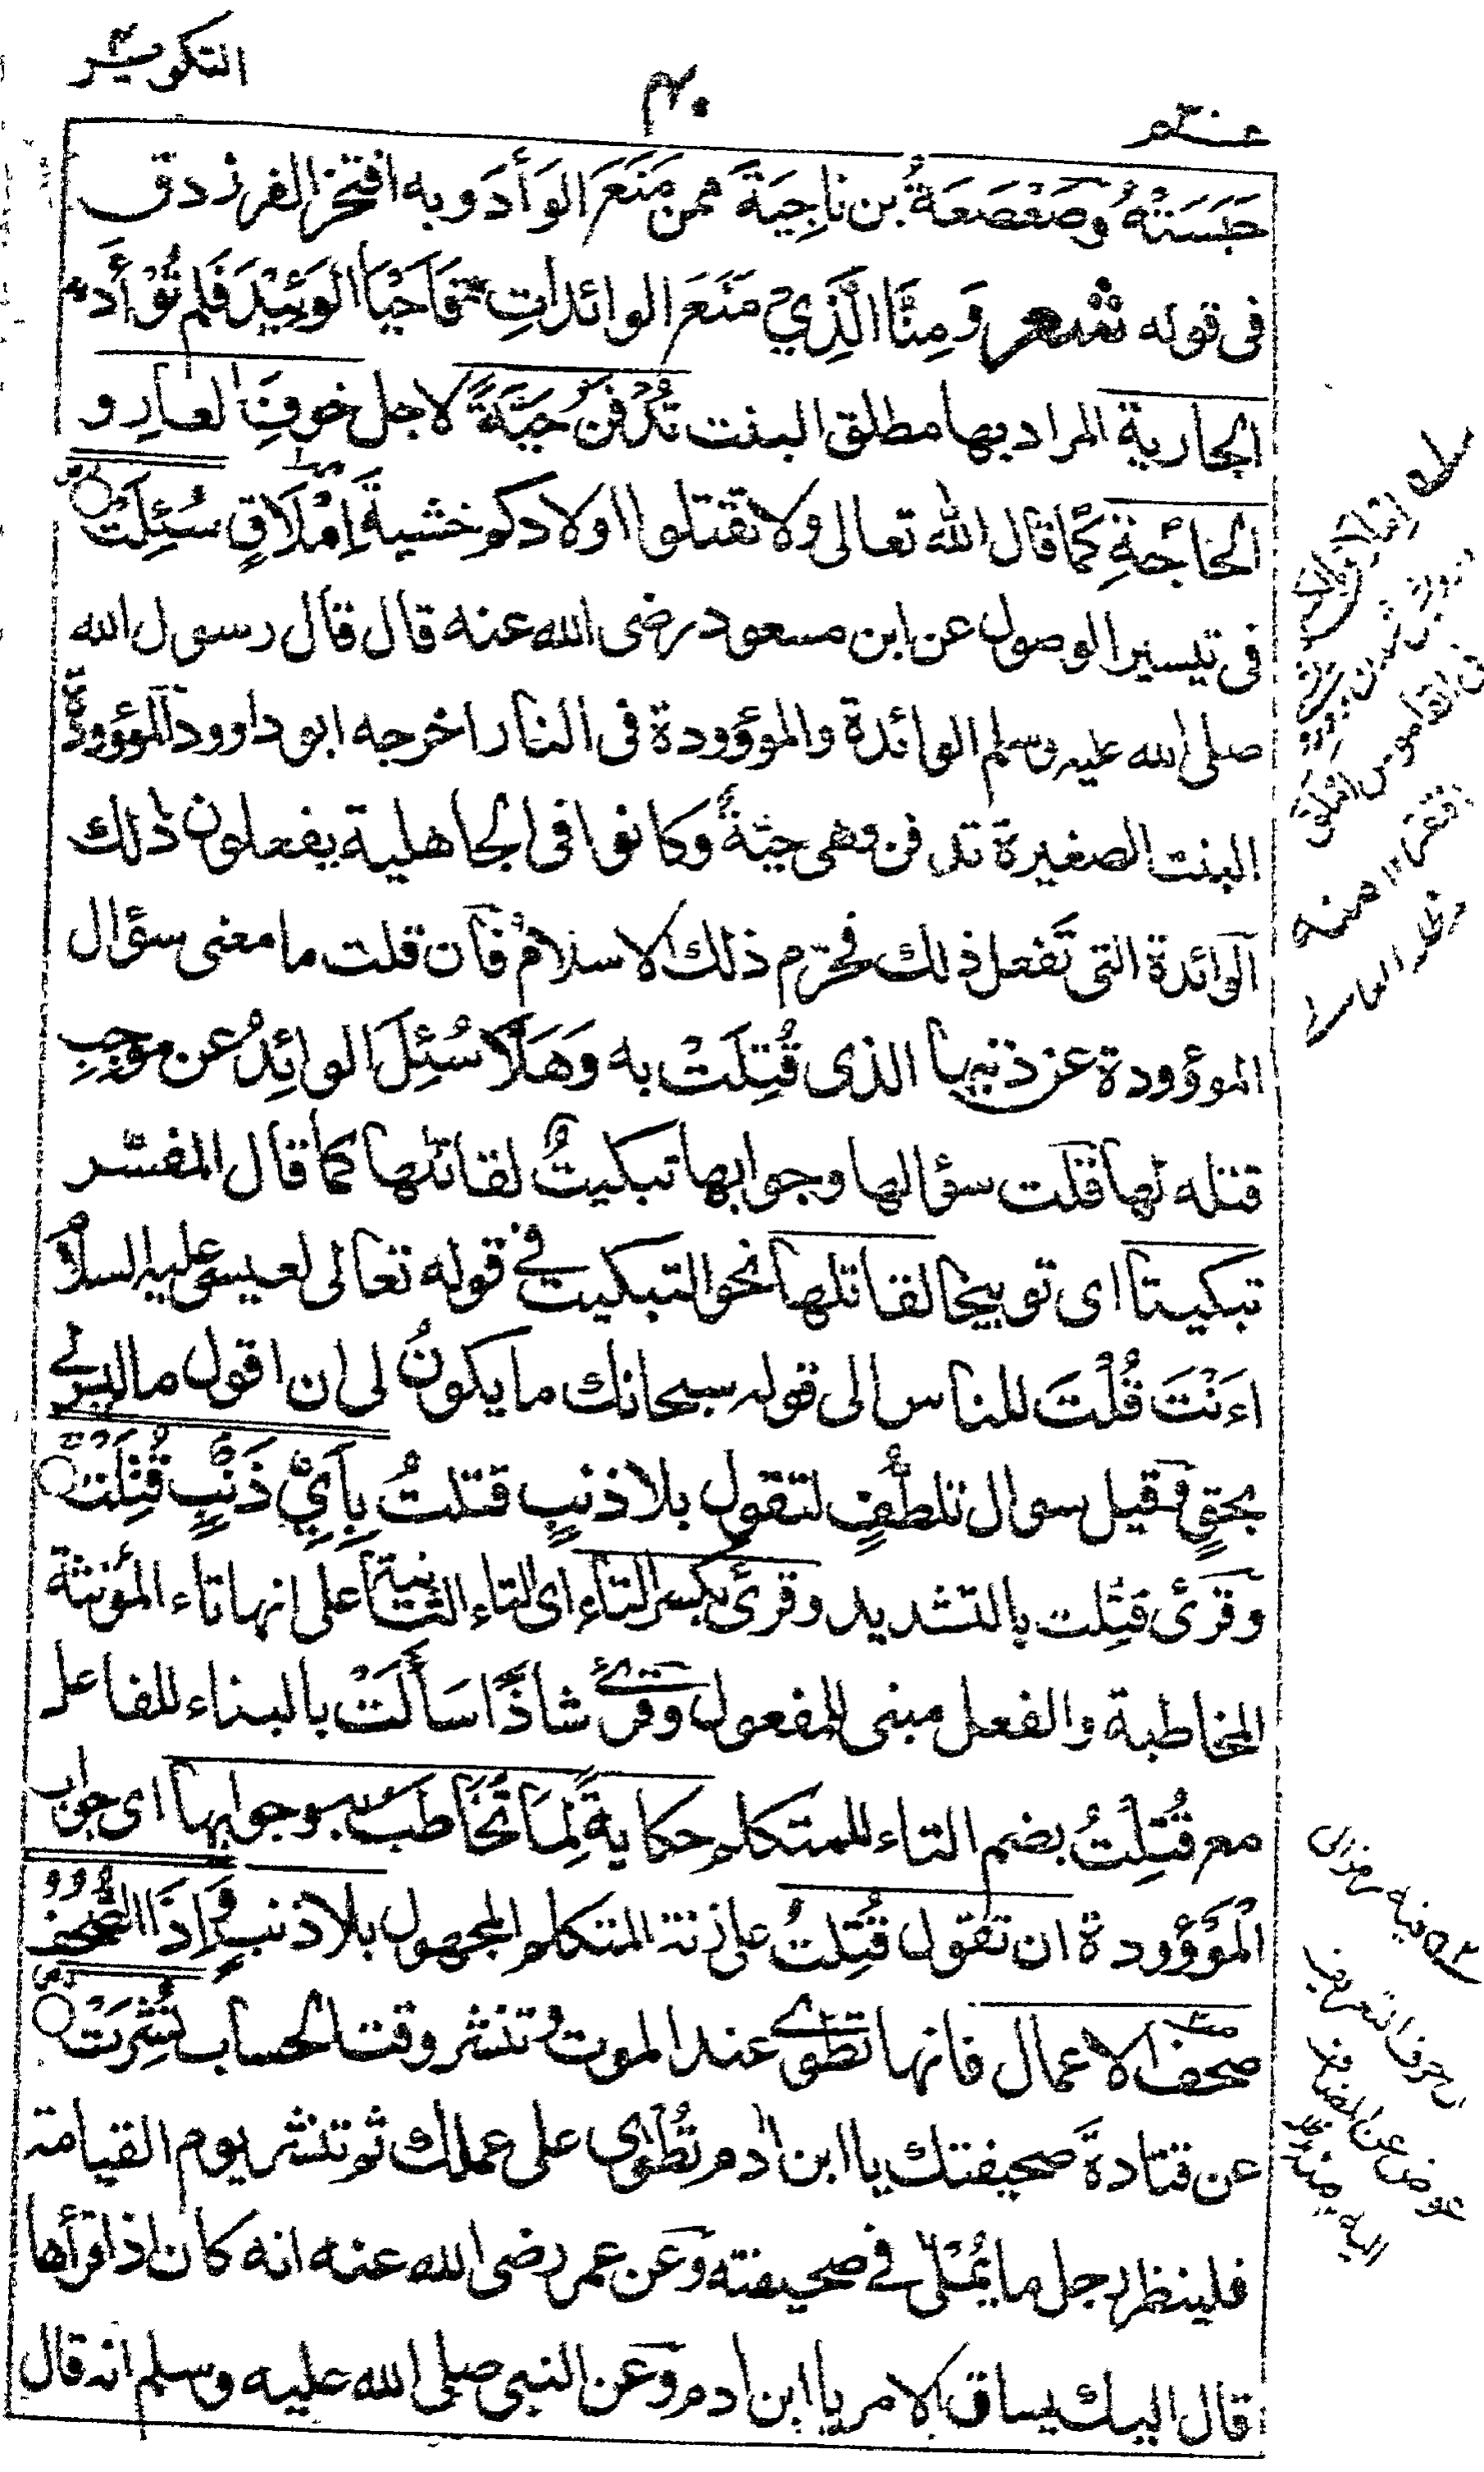 عم
٤٠
التكوير
حبسته وصعصعةُ بن ناجيةَ ممن مَنَعَ الوَأدَ وبه افتخر الفرزدق
فى قوله شعر وَمِنَّا الَّذِيْ مَنَعَ الوائداتِ فَاَحْيَا الوَئِيْدَ فَلم تُوْأَدِ
الجارية المراد بها مطلق البنت تُدْفَنُ حَيَّةً لاجل خوفِ العارِ و
الحاجةِ كما قال الله تعالى ولا تقتلوا اولادكم خشيةَ اِمْلَاقٍ سُئِلَتْ
فى تيسير الوصول عن ابن مسعود رضى الله عنه قال قال رسول الله
صلى الله عليه وسلم الوائدة والموؤودة فى النار اخرجه ابو داوود الموؤودة
البنت الصغيرة تدفن وهى حيّةٌ وكانوا فى الجاهلية يفعلون ذلك
الوائدة التى تَفعل ذلك فحرّم ذلك الاسلامُ فان قلت ما معنى سؤال
الموؤودة عن ذنبها الذى قُتِلَتْ به وَهَلَّا سُئِلَ الوائِدُ عن موجِبِ
قتله لها قلت سؤالها وجوابها تبكيتٌ لقاتلها كما قال المفسّر
تبكيتا اى توبيخا لقاتلها نحو التبكيت فى قوله تعالى لعيسى عليه السلام
اءَنْتَ قُلْتَ للناس الى قوله سبحانك ما يكونُ لى ان اقول ما ليس لى
بحقٍ وقيل سوال تلطُّفٍ لتقول بلا ذنبٍ قتلتُ بِاَيِّ ذَنْۢبٍ قُتِلَتْ
وقرئ قتِّلت بالتشديد وقرئ بكسر التاء اى التاء الثانية على انها تاء المؤنثة
المخاطبة والفعل مبنى للمفعول وقرئ شاذًا سَأَلَتْ بالبناء للفاعل
مع قُتِلْتُ بضم التاء للمتكلم حكايةً لِمَا تُخَاطَبُ به وجوابها اى جواب
الْمَوْؤودة ان تقول قُتِلْتُ على زنة المتكلم المجهول بلا ذنب وَاِذَا الصُّحُفُ
صحف الاعمال فانها تطوى عند الموت وتنشر وقت الحساب نُشِرَتْ
عن قتادةَ صحيفتك يا ابن ادم تُطْوى على عملك ثم تنشر يوم القيامة
فلينظر رجل ما يُمْلى فى صحيفته وعن عمر رضى الله عنه انه كان اذا قرأها
قال اليك يساق الامر يا ابن ادم وعن النبى صلى الله عليه وسلم انه قال